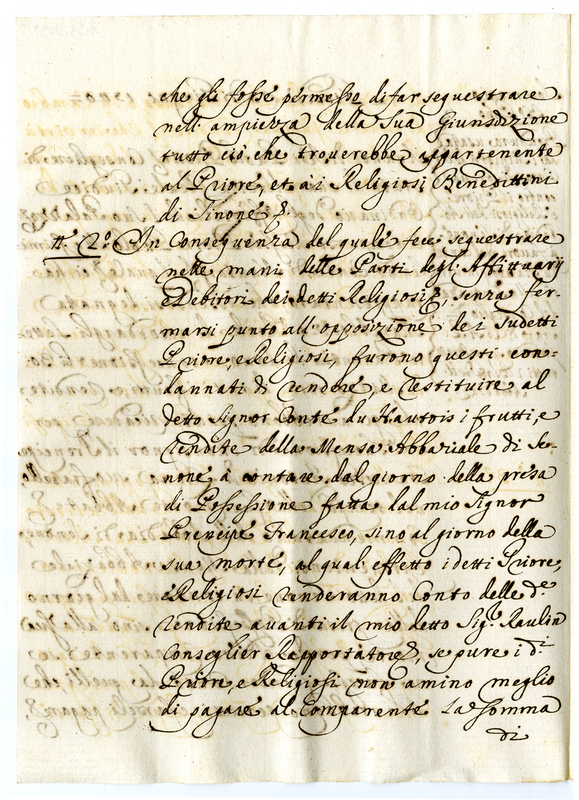 che gli fosse permesso di far sequestrare
nell'ampiezza della Sua Giurisdizione
tutto ciò che trouerebbe appartenente
al Priore, et ài Religiosi Benedittini
di Sinone
2.º In Consequenza del quale fece sequestrare
nelle mani delle Parti degl'Affittuarij
e Debitori dei detti Religiosi, senza fer-
marsi punto all'opposizione dei sudetti
Priore, e Religiosi, furono questi con-
dannati di rendere, e restituire al
detto Signor Conte du Hautois i frutti, e
rendite della Mensa Abbaziale di Se-
none, à contare dal giorno della presa
di Possessione fatta dal mio Signor
Prencipe Francesco, sino al giorno della
sua morte, al qual effetto i detti Priore,
e Religiosi renderanno Conto delle d.e
rendite auanti il mio detto Sig.r Raulin
Conseglier Rapportatore, se pure i d.i
Priore, e Religiosi non amino meglio
di pagare al Comparente La Somma
di